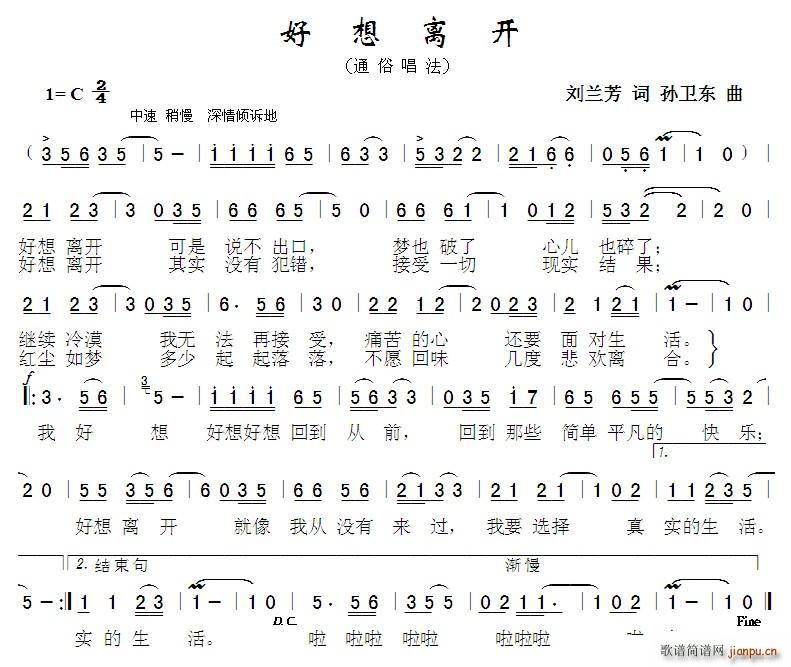 好 想 离 开
(通 俗 唱 法)
1= C 2/4
刘兰芳 词 孙卫东 曲
中速 稍慢 深情倾诉地
( 3 5 6 3 5 | 5 – | i i i i 6 5 | 6 3 3 | 5 3 2 2 | 2 1 6 6 | 0 5 6 1 | 1 0 ) |
2 1 2 3 | 3 0 3 5 | 6 6 6 5 | 5 0 | 6 6 6 1 | 1 0 1 2 | 5 3 2 2 | 2 0 |
好想 离开 可是 说不 出口， 梦也 破了 心儿 也碎了；
好想 离开 其实 没有 犯错， 接受 一切 现实 结 果；
2 1 2 3 | 3 0 3 5 | 6· 5 6 | 3 0 | 2 2 1 2 | 2 0 2 3 | 2 1 2 1 | 1 – | 1 0 |
继续 冷漠 我无 法 再接 受， 痛苦 的心 还要 面 对生 活。
红尘 如梦 多少 起 起落 落， 不愿 回味 几度 悲 欢离 合。
f
3· 5 6 | 3 5 – | i i i i 6 5 | 5 6 3 3 | 0 3 5 i 7 | 6 5 6 5 5 | 5 5 3 2 |
我 好 想 好想好想 回到 从 前， 回到 那些 简单 平凡的 快 乐；
1.
2 0 | 5 5 3 5 6 | 6 0 3 5 | 6 6 5 6 | 2 1 3 3 | 2 1 2 1 | 1 0 2 | 1 1 2 3 5 |
好想 离 开 就像 我从 没有 来 过， 我要 选择 真 实的生 活。
2. 结束句 渐慢
5 – :| 1 1 2 3 | 1 – | 1 0 | 5· 5 6 | 6 5 3 5 | 0 2 1 1· | 1 0 2 | 1 – | 1 0 |
D.C. Fine
实 的 生 活。 啦 啦啦 啦啦 啦啦啦 啦
歌谱简谱网 jianpu.cn